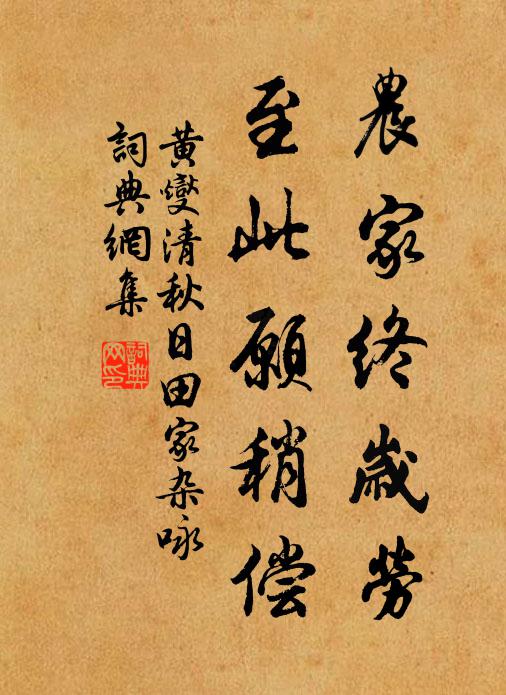 農家终歲勞
至此願稍偿
黄燮清秋日田家杂咏
詞典網集
詞典网印